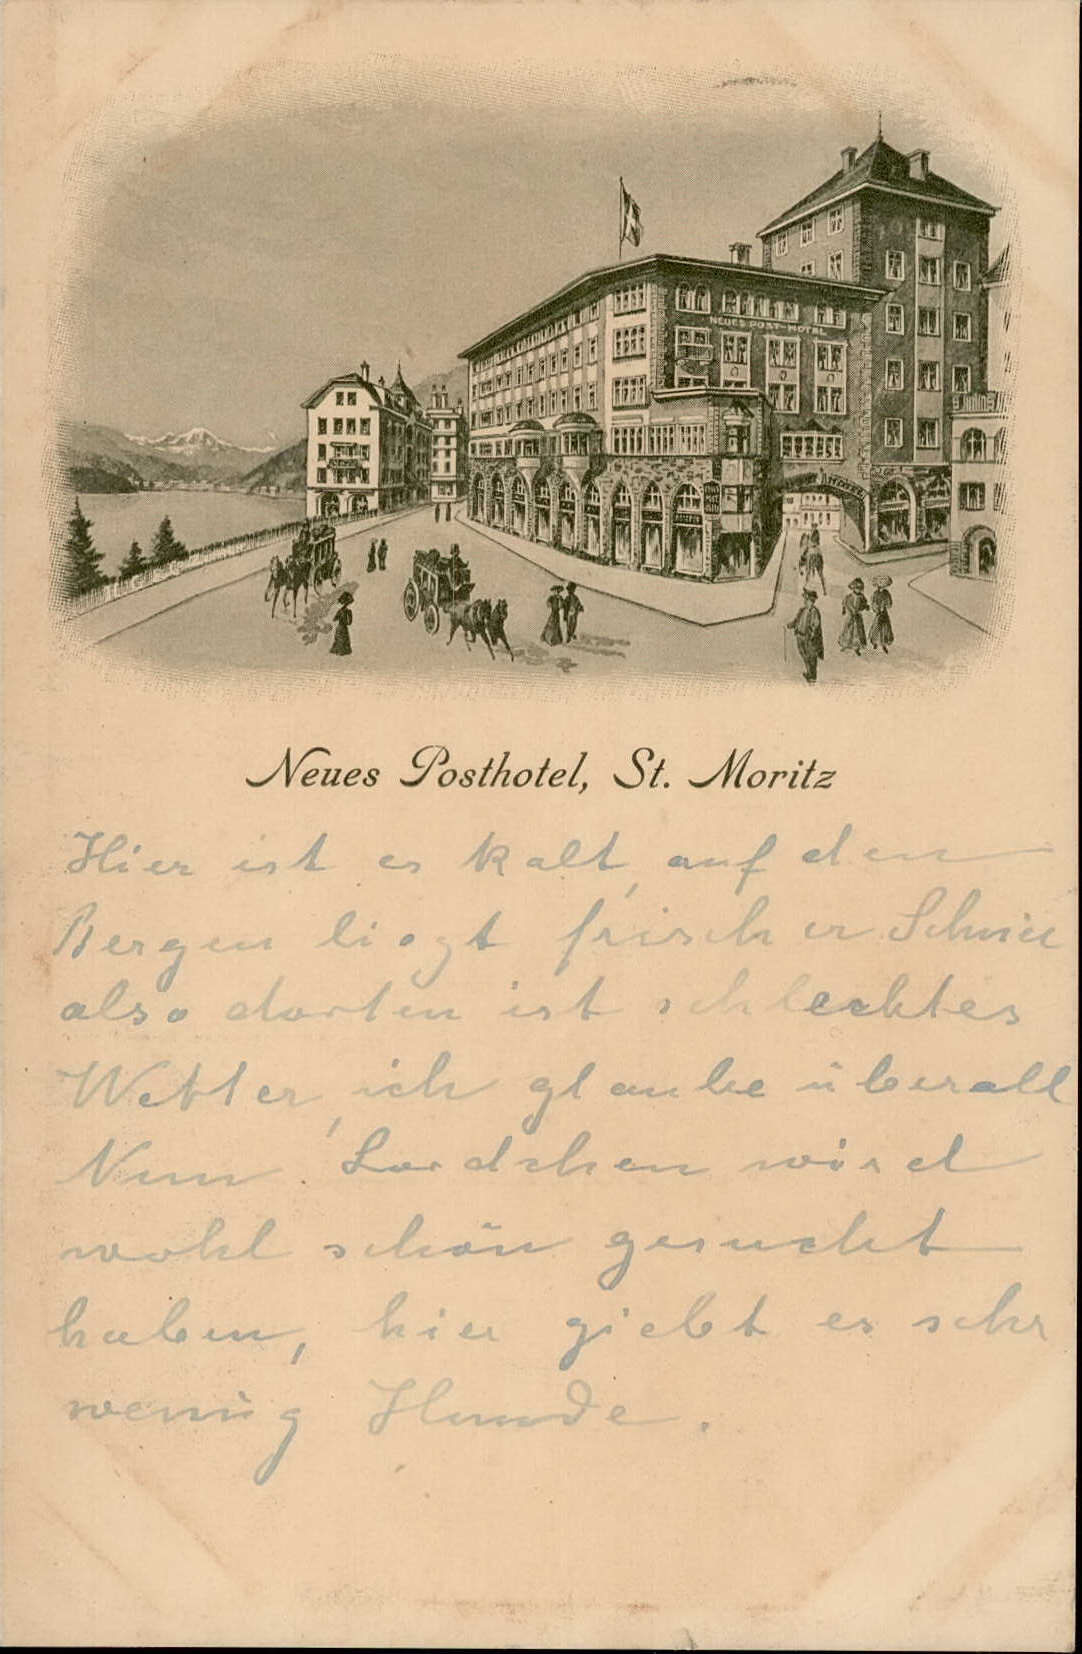 NEUES POST-HOTEL
Neues Posthotel, St. Moritz
Hier ist es kalt, auf den
Bergen liegt frischer Schnee
also dorten ist schlechtes
Wetter, ich glaube überall
Nun. Lordchen wird
wohl schön gesucht
haben, hier giebt es sehr
wenig Hunde.